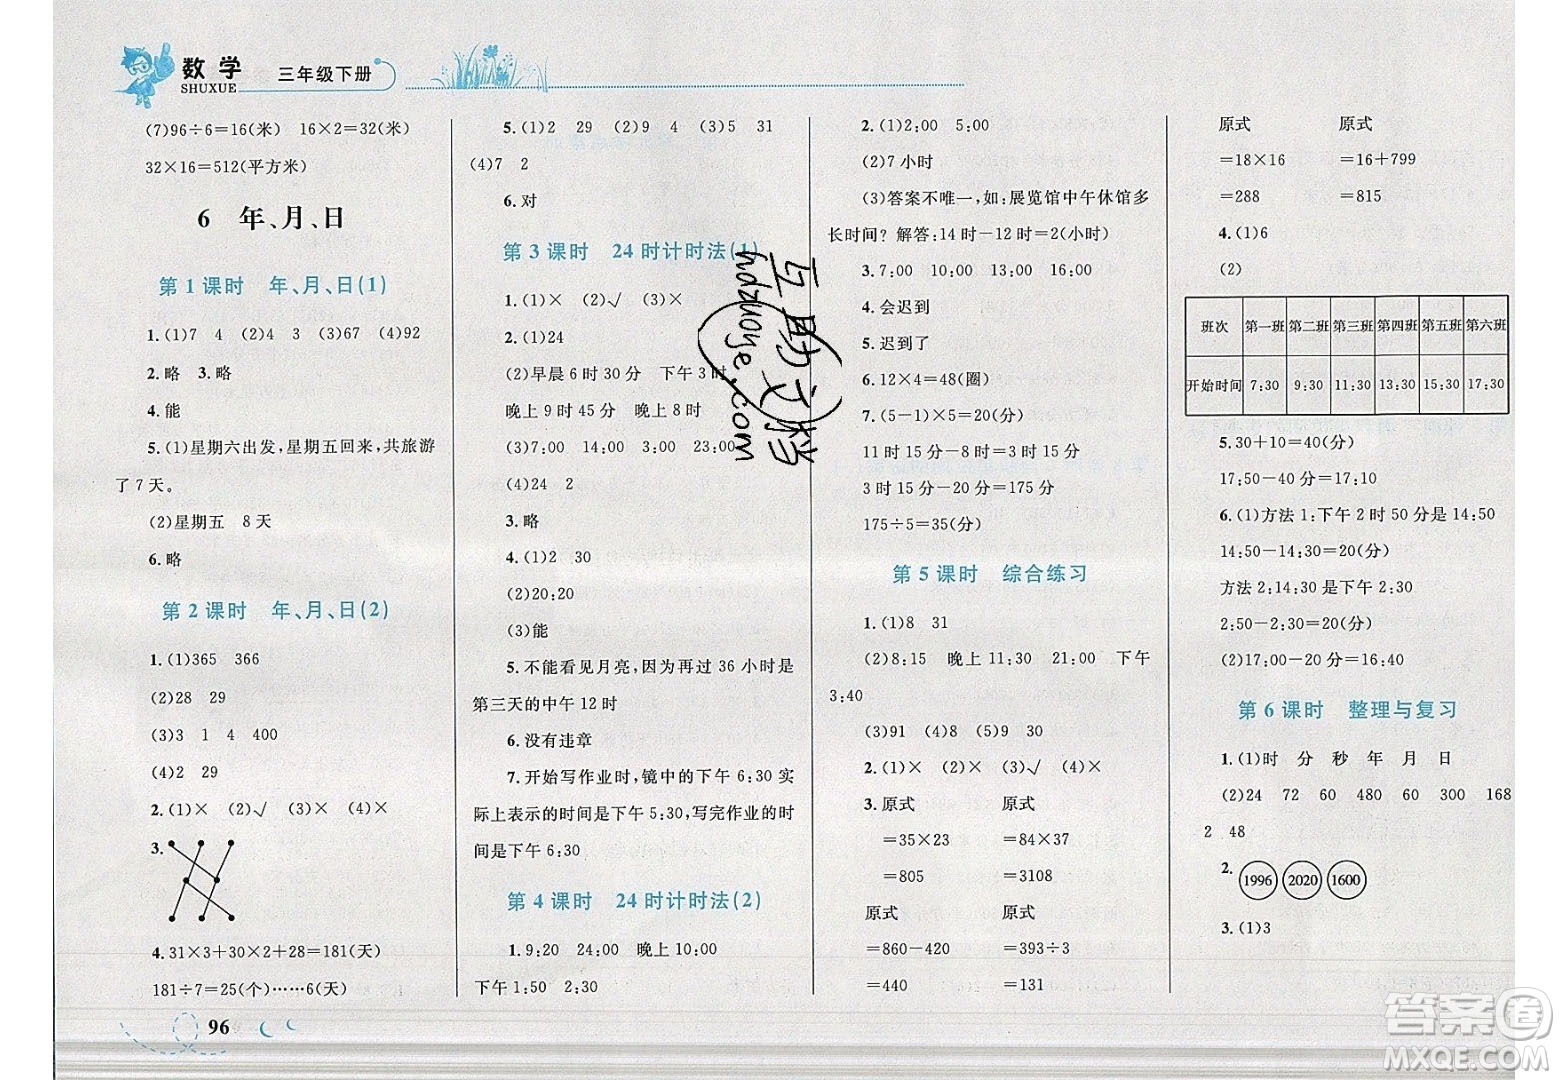 数学
SHUXUE
三年级下册
(7)96÷6=16(米) 16×2=32(米)
32×16=512(平方米)
6 年、月、日
第1课时 年、月、日(1)
1.(1)7 4 (2)4 3 (3)67 (4)92
2.略 3.略
4.能
5.(1)星期六出发,星期五回来,共旅游
了7天。
(2)星期五 8天
6.略
第2课时 年、月、日(2)
1.(1)365 366
(2)28 29
(3)3 1 4 400
(4)2 29
2.(1)× (2)√ (3)× (4)×
3.
4.31×3+30×2+28=181(天)
181÷7=25(个)……6(天)
96
5.(1)2 29 (2)9 4 (3)5 31
(4)7 2
6.对
第3课时 24时计时法(1)
1.(1)× (2)√ (3)×
2.(1)24
(2)早晨6时30分 下午3时
晚上9时45分 晚上8时
(3)7:00 14:00 3:00 23:00
(4)24 2
3.略
4.(1)2 30
(2)20:20
(3)能
5.不能看见月亮,因为再过36小时是
第三天的中午12时
6.没有违章
7.开始写作业时,镜中的下午6:30实
际上表示的时间是下午5:30,写完作业的时
间是下午6:30
第4课时 24时计时法(2)
1.9:20 24:00 晚上10:00
下午1:50 2:30
2.(1)2:00 5:00
(2)7小时
(3)答案不唯一,如:展览馆中午休馆多
长时间?解答:14时-12时=2(小时)
3.7:00 10:00 13:00 16:00
4.会迟到
5.迟到了
6.12×4=48(圈)
7.(5-1)×5=20(分)
11时15分-8时=3时15分
3时15分-20分=175分
175÷5=35(分)
第5课时 综合练习
1.(1)8 31
(2)8:15 晚上11:30 21:00 下午
3:40
(3)91 (4)8 (5)9 30
2.(1)× (2)× (3)√ (4)×
3.原式 原式
=35×23 =84×37
=805 =3108
原式 原式
=860-420 =393÷3
=440 =131
原式 原式
=18×16 =16+799
=288 =815
4.(1)6
(2)
班次 第一班 第二班 第三班 第四班 第五班 第六班
开始时间 7:30 9:30 11:30 13:30 15:30 17:30
5.30+10=40(分)
17:50-40分=17:10
6.(1)方法1:下午2时50分是14:50
14:50-14:30=20(分)
方法2:14:30是下午2:30
2:50-2:30=20(分)
(2)17:00-20分=16:40
第6课时 整理与复习
1.(1)时 分 秒 年 月 日
(2)24 72 60 480 60 300 168
2 48
2. 1996 2020 1600
3.(1)3
互助文档
hdzuoye.com
答案圈
MXQE.COM